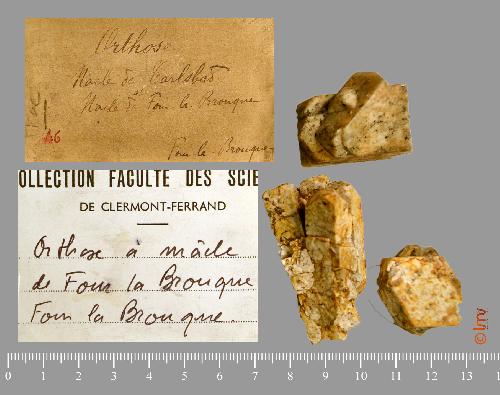 Orthose
Macle de Carlsbad
Macle de Four la Brouque
46
Four la Brouque
OLLECTION FACULTE DES SCIE
DE CLERMONT-FERRAND
Orthose à mâcle
de Four la Brouque
Four la Brouque.
0 1 2 3 4 5 6 7 8 9 10 11 12 13 1